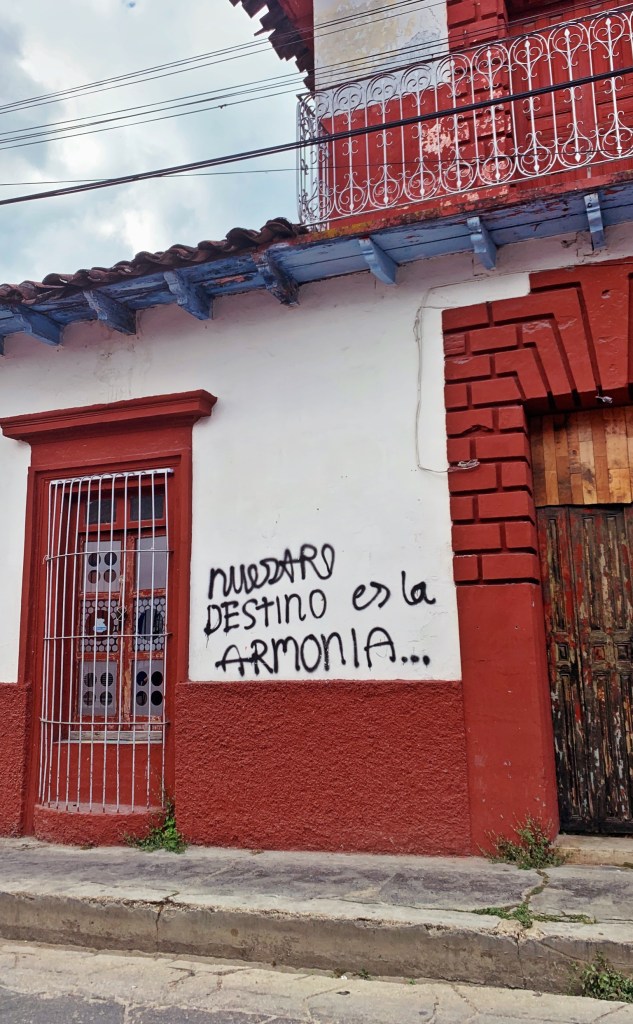 NUESTRO
DESTINO es la
ARMONIA...